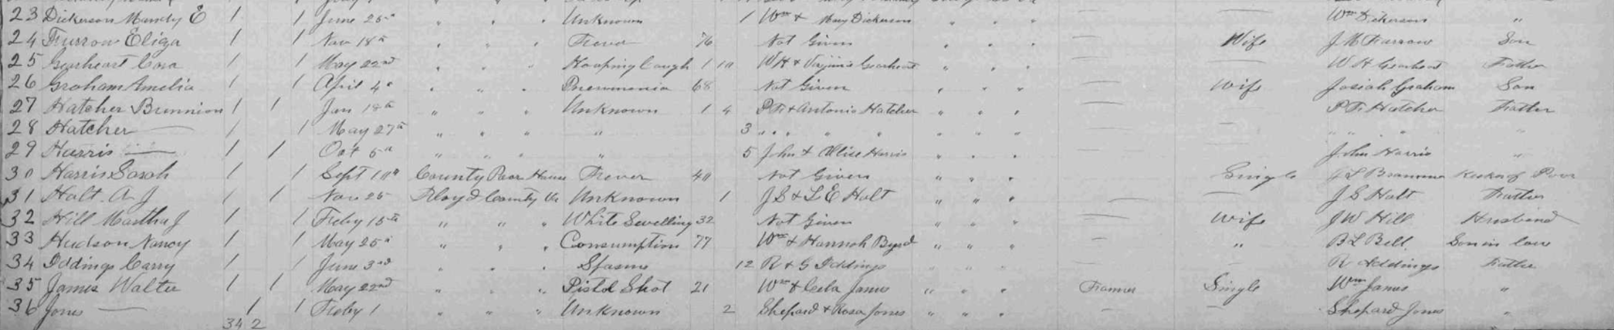 23 Dickerson Mandy E 1 1 June 25th " " " Unknown 1 Wm & May Dickerson " " " Wm Dickerson "
24 Furrow Eliza 1 1 Nov 18th " " " Fever 76 Not Given " " " Wife J M Farrow Son
25 Gearheart Cora 1 1 May 22nd " " " Hooping Cough 1 10 W H & Gearheart " " " W H Gearheart Father
26 Graham Amelia 1 1 April 4th " " " Pneumonia 68 Not Given " " " Wife Josiah Graham Son
27 Hatcher 1 1 Jan 18th " " " Unknown 1 4 P F & Antonia Hatcher " " " P F Hatcher Father
28 Hatcher 1 1 May 27th " " " " 3 " " " " " " " " " " "
29 Harris 1 1 Oct 5th " " " " 5 John & Alice Harris " " " John Harris "
30 Harris Sarah 1 1 Sept 10th County Poor House Fever 40 Not Given " " " Single Keeker of Poor
31 Holt A J 1 1 Nov 25 Floyd County Va Unknown 1 J S & L E Holt " " " J S Holt Father
32 Hill Martha J 1 1 Feby 15th " " " White Swelling 32 Not Given " " " Wife J W Hill Husband
33 Hudson Nancy 1 1 May 25th " " " Consumption 77 Wm & Hannah Byrd " " " " B L Bell Son in law
34 Iddings Carry 1 1 June 3rd " " " Spasms 12 R & G Iddings " " " R Iddings Father
35 James Walter 1 1 May 22nd " " " Pistol Shot 21 Wm & Celia James " " " Farmer Single Wm James "
36 Jones 1 1 Feby 1 " " " Unknown 2 Shepard & Rosa Jones " " " Shepard Jones "
34 2